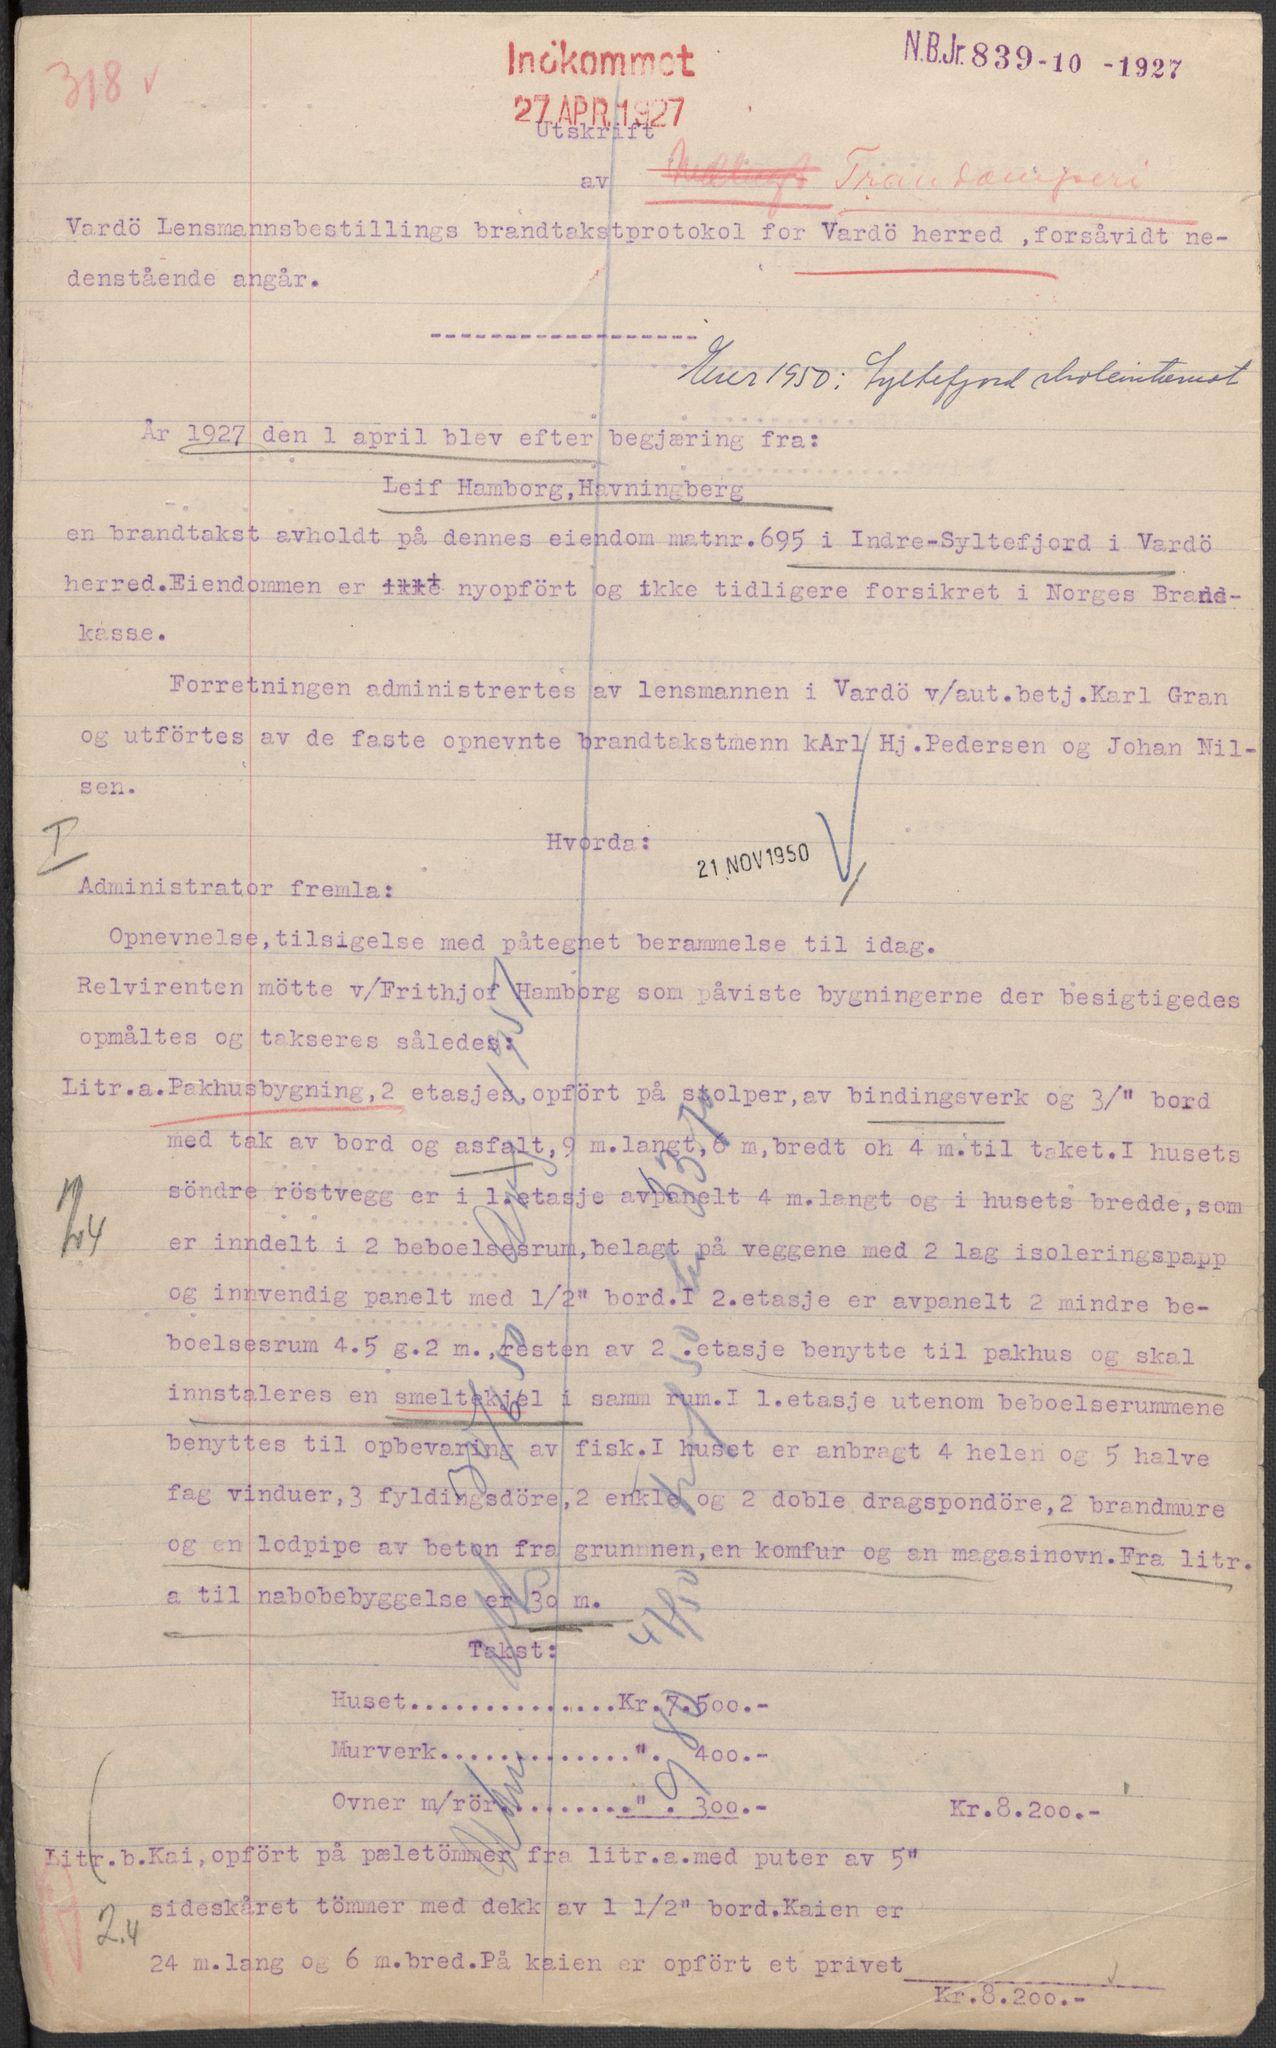 318 ✓
Indkommet
27 APR. 1927
N.B.Jr. 839-10 -1927
Utskrift
av
Trandamperi
Vardö Lensmannsbestillings brandtakstprotokol for Vardö herred ,forsåvidt ne-
denstående angår.
-------------------
Eier 1950: Syltefjord skoleinternat
År 1927 den 1 april blev efter begjæring fra:
Leif Hamborg,Havningberg
en brandtakst avholdt på dennes eiendom matnr.695 i Indre-Syltefjord i Vardö
herred.Eiendommen er nyopfört og ikke tidligere forsikret i Norges Brand-
kasse.
Forretningen administrertes av lensmannen i Vardö v/aut.betj.Karl Gran
og utförtes av de faste opnevnte brandtakstmenn kArl Hj.Pedersen og Johan Nil-
sen.
I
Hvorda:
21 NOV 1950
Administrator fremla:
Opnevnelse,tilsigelse med påtegnet berammelse til idag.
Relvirenten mötte v/Frithjof Hamborg som påviste bygningerne der besigtigedes
opmåltes og takseres således:
Litr.a.Pakhusbygning,2 etasjes,opfört på stolper,av bindingsverk og 3/" bord
med tak av bord og asfalt,9 m.langt,6 m,bredt oh 4 m.til taket.I husets
söndre röstvegg er i 1.etasje avpanelt 4 m.langt og i husets bredde,som
er inndelt i 2 beboelsesrum,belagt på veggene med 2 lag isoleringspapp
og innvendig panelt med 1/2" bord.I 2.etasje er avpanelt 2 mindre be-
boelsesrum 4.5 g.2 m.,resten av 2 .etasje benytte til pakhus og skal
innstaleres en smeltekjel i samm rum.I 1.etasje utenom beboelserummene
benyttes til opbevaring av fisk.I huset er anbragt 4 helen og 5 halve
fag vinduer,3 fyldingsdöre,2 enkle og 2 doble dragspondöre,2 brandmure
og en lodpipe av beton fra grunnnen,en komfur og an magasinovn.Fra litr.
a til nabobebyggelse er 30 m.
Takst:
Huset...............Kr.7.500.-
Murverk..............". 400.-
Ovner m/rör..........". 300.- Kr.8.200.-
Litr.b.Kai,opfört på pæletömmer fra litr.a.med puter av 5"
sideskåret tömmer med dekk av 1 1/2" bord.Kaien er
2.4
24 m.lang og 6 m.bred.På kaien er opfört et privet
Kr.8.200.-